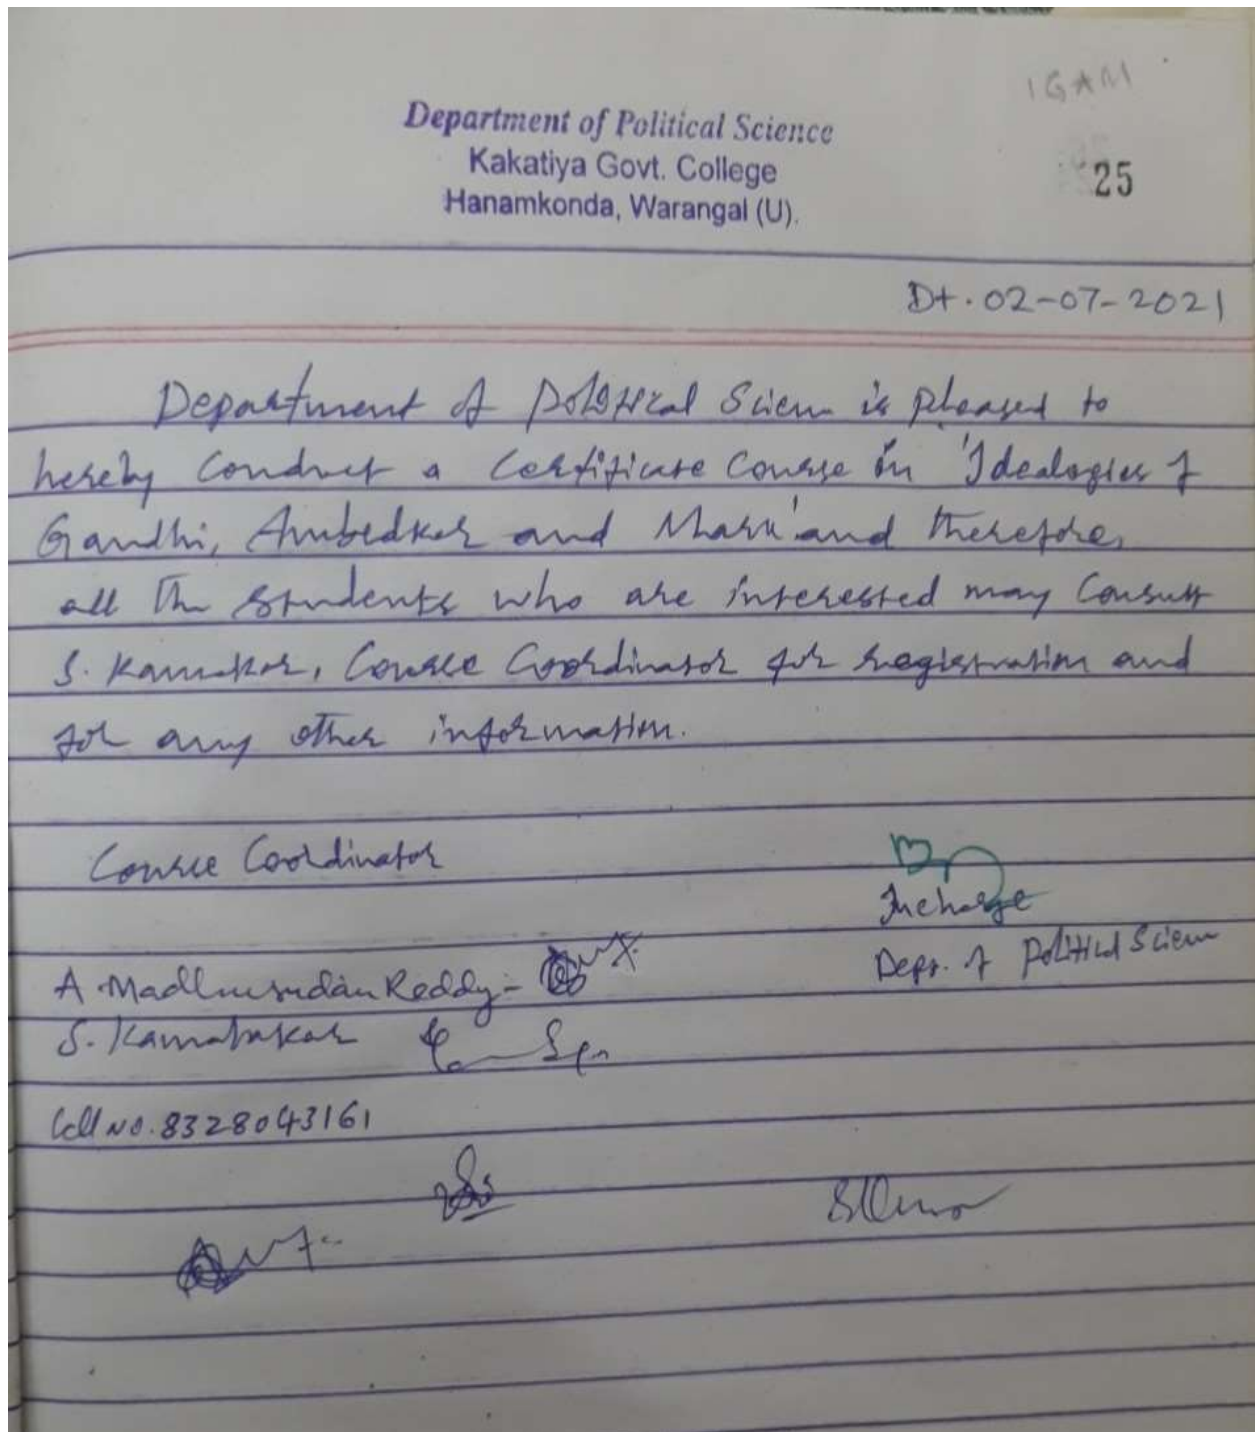 IGAM
Department of Political Science
Kakatiya Govt. College
25
Hanamkonda, Warangal (U).
Dt. 02-07-2021
Department of Political Science is pleased to
hereby Conduct a Certificate Course in 'Idealogies of
Gandhi, Ambedkar and Marx' and therefore,
all the students who are interested may Consult
S. Kamakar, Course Coordinator for registration and
for any other information.
Course Coordinator
Incharge
Dept. of Political Science
A Madhusudan Reddy -
S. Kamalakar
Cell No. 8328043161